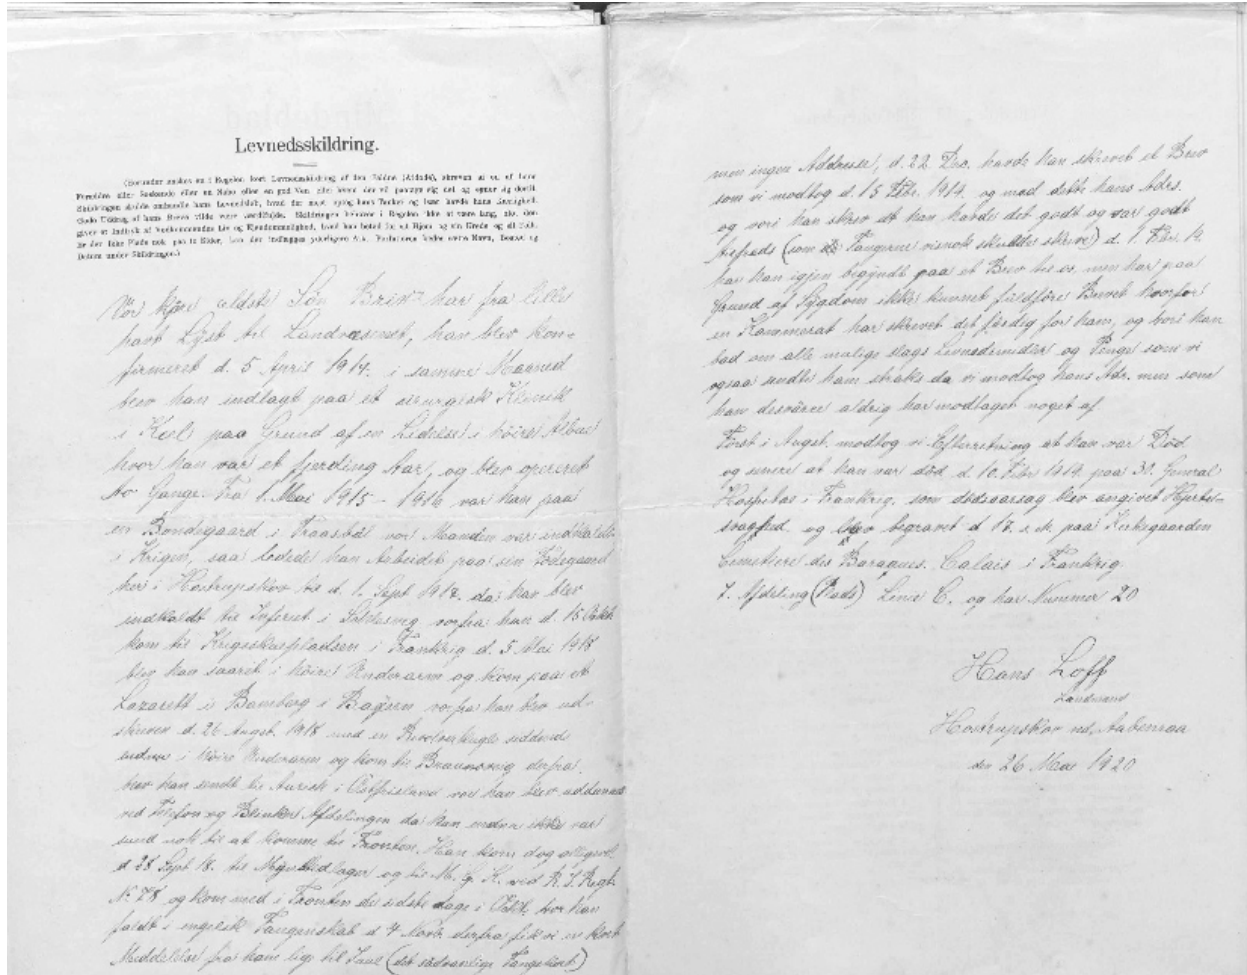 Levnedsskildring.
(Herunder ønskes en i Regelen kort Levnedsskildring af den Faldne (Afdøde), skreven af en af hans
Forældre eller Søskende eller en Nabo eller en god Ven eller hvem der vil paatage sig det og egner sig dertil.
Skildringen skulde omhandle hans Levnedsløb, hvad der mest optog hans Tanker og især havde hans Kærlighed.
Gode Uddrag af hans Breve vilde være værdifulde. Skildringen behøver i Regelen ikke at være lang, blot den
giver et Indtryk af Vedkommendes Liv og Ejendommelighed, hvad han betød for sit Hjem og sin Kreds og sit Folk.
Er der ikke Plads nok paa to Sider, kan der indlægges yderligere Ark. Forfatteren bedes skrive Navn, Bopæl og
Datum under Skildringen.)
Vor kjære ældste Søn har fra lille
havt Lyst til Landvæsenet, han blev kon-
firmeret d. 5 April 1914. i samme Maaned
blev han indlagt paa et cirurgisk Klinik
i Kiel paa Grund af en Lidelse i höire Albue
hvor han var et fjerding Aar, og blev opereret
to Gange. Fra 1. Mai 1915 - 1916 var han paa
en Bondegaard i Traasböl vor Manden var indkaldt
i Krigen, saa ledede han Arbeidet paa sin Födegaard
her i Hostrupskov til d. 1. Sept 1917. da han blev
indkaldt til Infanteri i Slesvig vorfra han d. 15
kom til Krigsskuepladsen i Frankrig d. 5 Mai 1918
blev han saaret i höire Underarm og kom paa et
Lazarett i Bamberg i Bayern vorfra han blev ud-
skreven d. 26 August. 1918 med en Revolverkugle siddende
endnu i höire Underarm og kom til Braunsvig derfra
blev han sendt til Aurich i Ostfrisland vor han blev uddannet
ved Telefon og Blinker Afdelingen da han endnu ikke var
sund nok til at komme til Fronten. Han kom dog alligevel
d 28 Sept 18. til og til M. G. K. ved R. I. Regt.
No 78 og kom med i Fronten de sidste Dage i Okt. hvor han
faldt i engelsk Fangenskab d 4 Novb. derfra fik vi en kort
Meddelelse fra ham lige til Juul (det sædvanlige Fangekort)
men ingen Addresse, d. 22 Dec. havde han skrevet et Brev
som vi modtog d. 15 Febr. 1919. og med dette hans Adrs.
og vori han skrev at han havde det godt og var godt
tilfreds (som de Fangerne visnok skulde skrive) d. 1. Febr. 19.
har han igjen begyndt paa et Brev til os. men har paa
Grund af Sygdom ikke kunnet fuldföre Brevet hvorfor
en Kammerat har skrevet det færdig for ham, og hvori han
bad om alle mulige slags Levnedsmidler og Penge som vi
ogsaa sendte ham straks da vi modtog hans Adr. men som
han desværre aldrig har modtaget noget af.
Först i August. modtog vi Efterretning at han var Död
og senere at han var död d. 10. Febr 1919. paa 30. General
Hospital i Frankrig. som dödsaarsag blev angivet Hjerte-
svaghed. og blev begravet d 17. s. M. paa Kirkegaarden
Cimetiere des Baraques. Calais i Frankrig.
7. Afdeling (Rade) Linie C. og har Nummer 20
Hans Loff
Landmand
Hostrupskov ved Aabenraa
den 26 Mai 1920